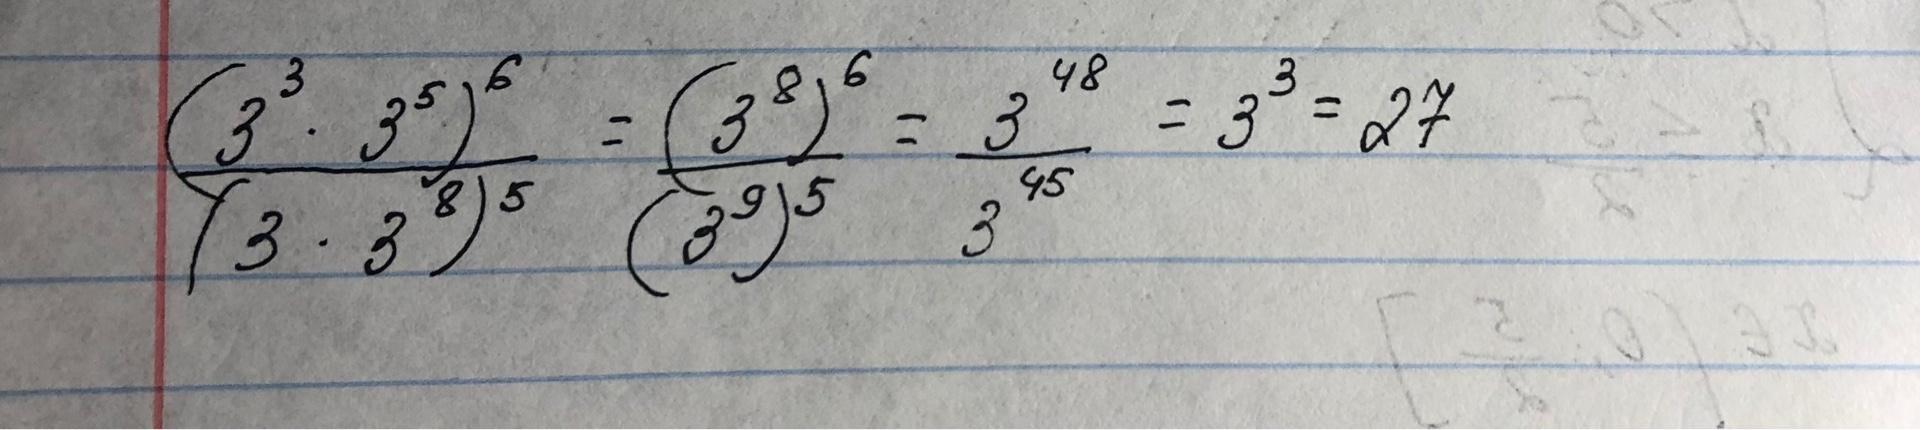 (3³ · 3⁵)⁶ / (3 · 3⁸)⁵ = (3⁸)⁶ / (3⁹)⁵ = 3⁴⁸ / 3⁴⁵ = 3³ = 27